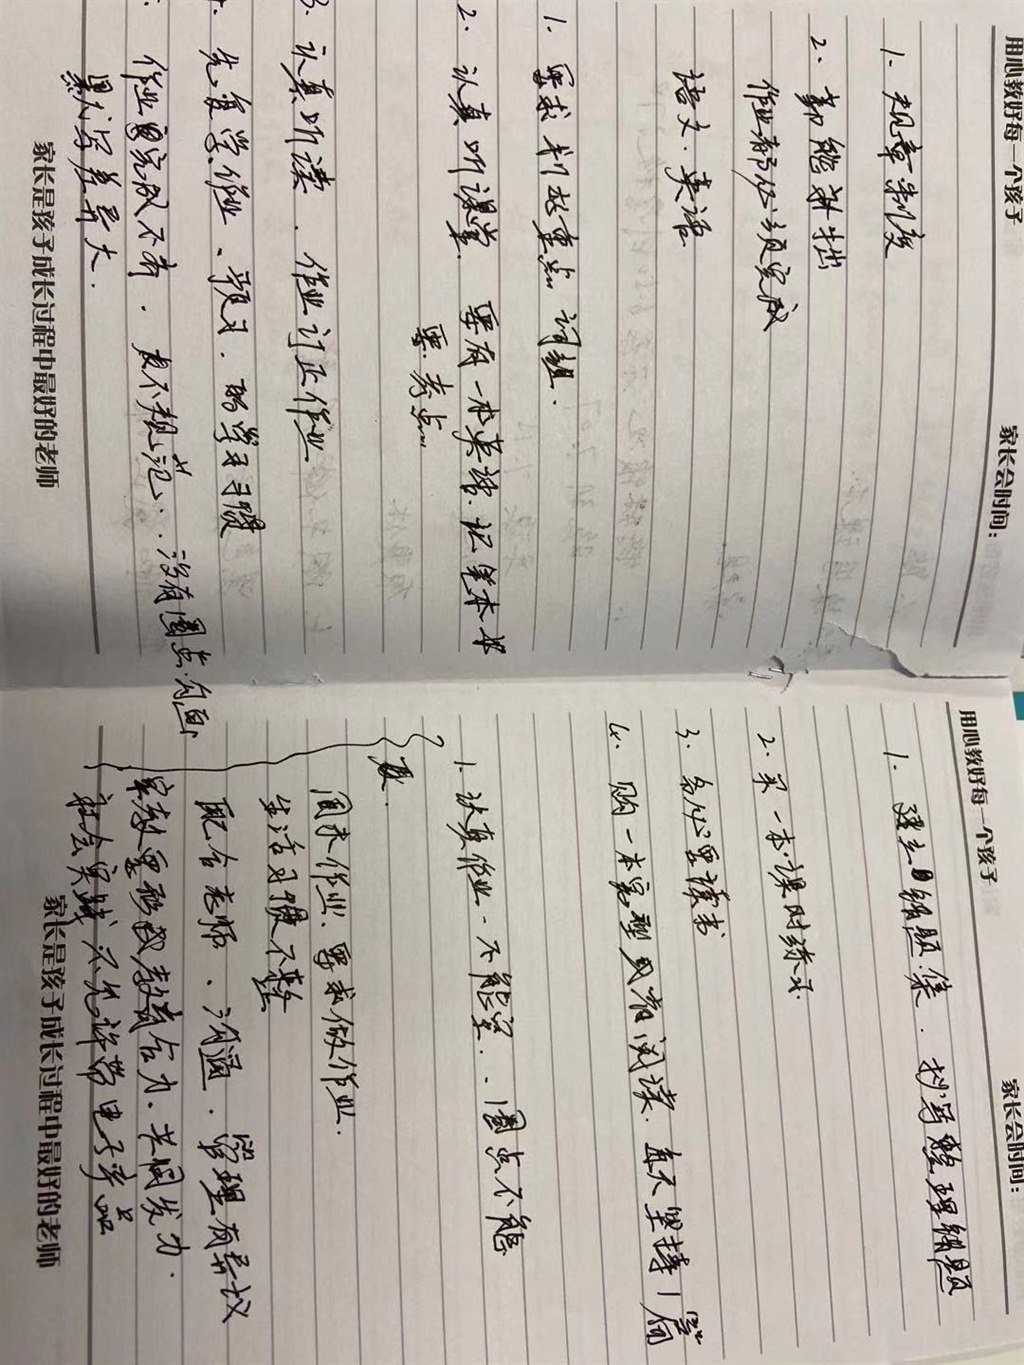 用心教好每一个孩子
家长会时间：
1. 规章制度
2. 勤能补拙
作业都必须完成
语文、英语
1. 要求划起重点、词组.
2. 认真听课堂. 要有一本英语.记笔本书
要.考点
3. 认真听读、作业订正作业
4. 先复学作业、预习. 的学习习惯
作业完成不齐. 书不规范、没有圈点.勾画
默写差异大.
家长是孩子成长过程中最好的老师
用心教好每一个孩子
家长会时间：
1. 建立日错题集. 抄写整理错题
2. 买一本课时练习
3. 名必要读书
4. 购一本完型或者阅读. 每天坚持1篇
1. 认真作业. 不能, 圈点不能
周末作业. 要求做作业.
生活习惯不
配合老师、沟通. 管理有异议
家教要形成教育合力. 共同发力.
社会实践 不允许带电子产品
家长是孩子成长过程中最好的老师